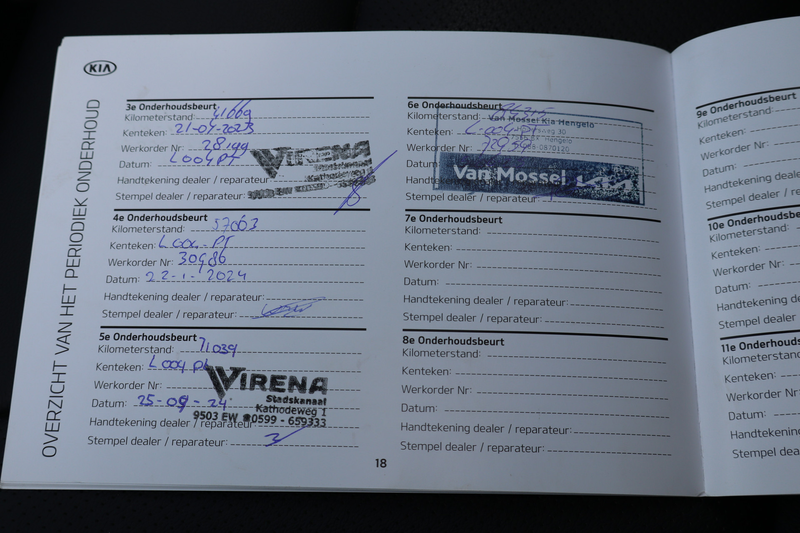 KIA
OVERZICHT VAN HET PERIODIEK ONDERHOUD
3e Onderhoudsbeurt
Kilometerstand: 41669
Kenteken: 21-04-2023
Werkorder Nr: 28199
Datum: L004PT
Handtekening dealer / reparateur:
Stempel dealer / reparateur:
VIRENA
4e Onderhoudsbeurt
Kilometerstand: 57063
Kenteken: L004-PT
Werkorder Nr: 30986
Datum: 22-1-2024
Handtekening dealer / reparateur:
Stempel dealer / reparateur:
5e Onderhoudsbeurt
Kilometerstand: 71039
Kenteken: L004 PT
Werkorder Nr:
Datum: 25-09-24
Handtekening dealer / reparateur:
Stempel dealer / reparateur:
VIRENA
Stadskanaal
Kathodeweg 1
9503 EW ☎0599 - 659333
6e Onderhoudsbeurt
Kilometerstand:
Kenteken: L-004-PT
Werkorder Nr:
Datum:
Handtekening dealer / reparateur:
Stempel dealer / reparateur:
Van Mossel Kia Hengelo
Van Mossel KIA
7e Onderhoudsbeurt
Kilometerstand:
Kenteken:
Werkorder Nr:
Datum:
Handtekening dealer / reparateur:
Stempel dealer / reparateur:
8e Onderhoudsbeurt
Kilometerstand:
Kenteken:
Werkorder Nr:
Datum:
Handtekening dealer / reparateur:
Stempel dealer / reparateur:
18
9e Onderhoudsbeurt
Kilometerstand:
Kenteken:
Werkorder Nr:
Datum:
Handtekening
Stempel dealer
10e Onderhoudsbeurt
Kilometerstand:
Kenteken:
Werkorder Nr:
Datum:
Handtekening
Stempel dealer
11e Onderhoudsbeurt
Kilometerstand:
Kenteken:
Werkorder Nr:
Datum:
Handtekening
Stempel dealer